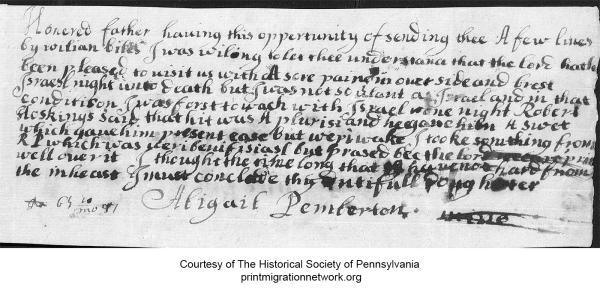 Honered father having this opportunity of sending thee A few lines
by wilian biles I was wiling to let thee understand that the lord hath
been pleased to visit us with A sore paine in over side and brest
Israel night unto death but I was not so as Israel and in that
condition I was forst to wach with Israel one night Robert
Hoskings said that hit was A plurisi and he gave him A swet
which gave him present ease but weri weake I tooke somthing from
R P which was veri benifisiasl but prased bee the lord
well over it I thought the time long that have not hard from
the in heast I must conclude thy dutifull Doughter
63 10 mo 81 Abigail Pemberton
Courtesy of The Historical Society of Pennsylvania
printmigrationnetwork.org